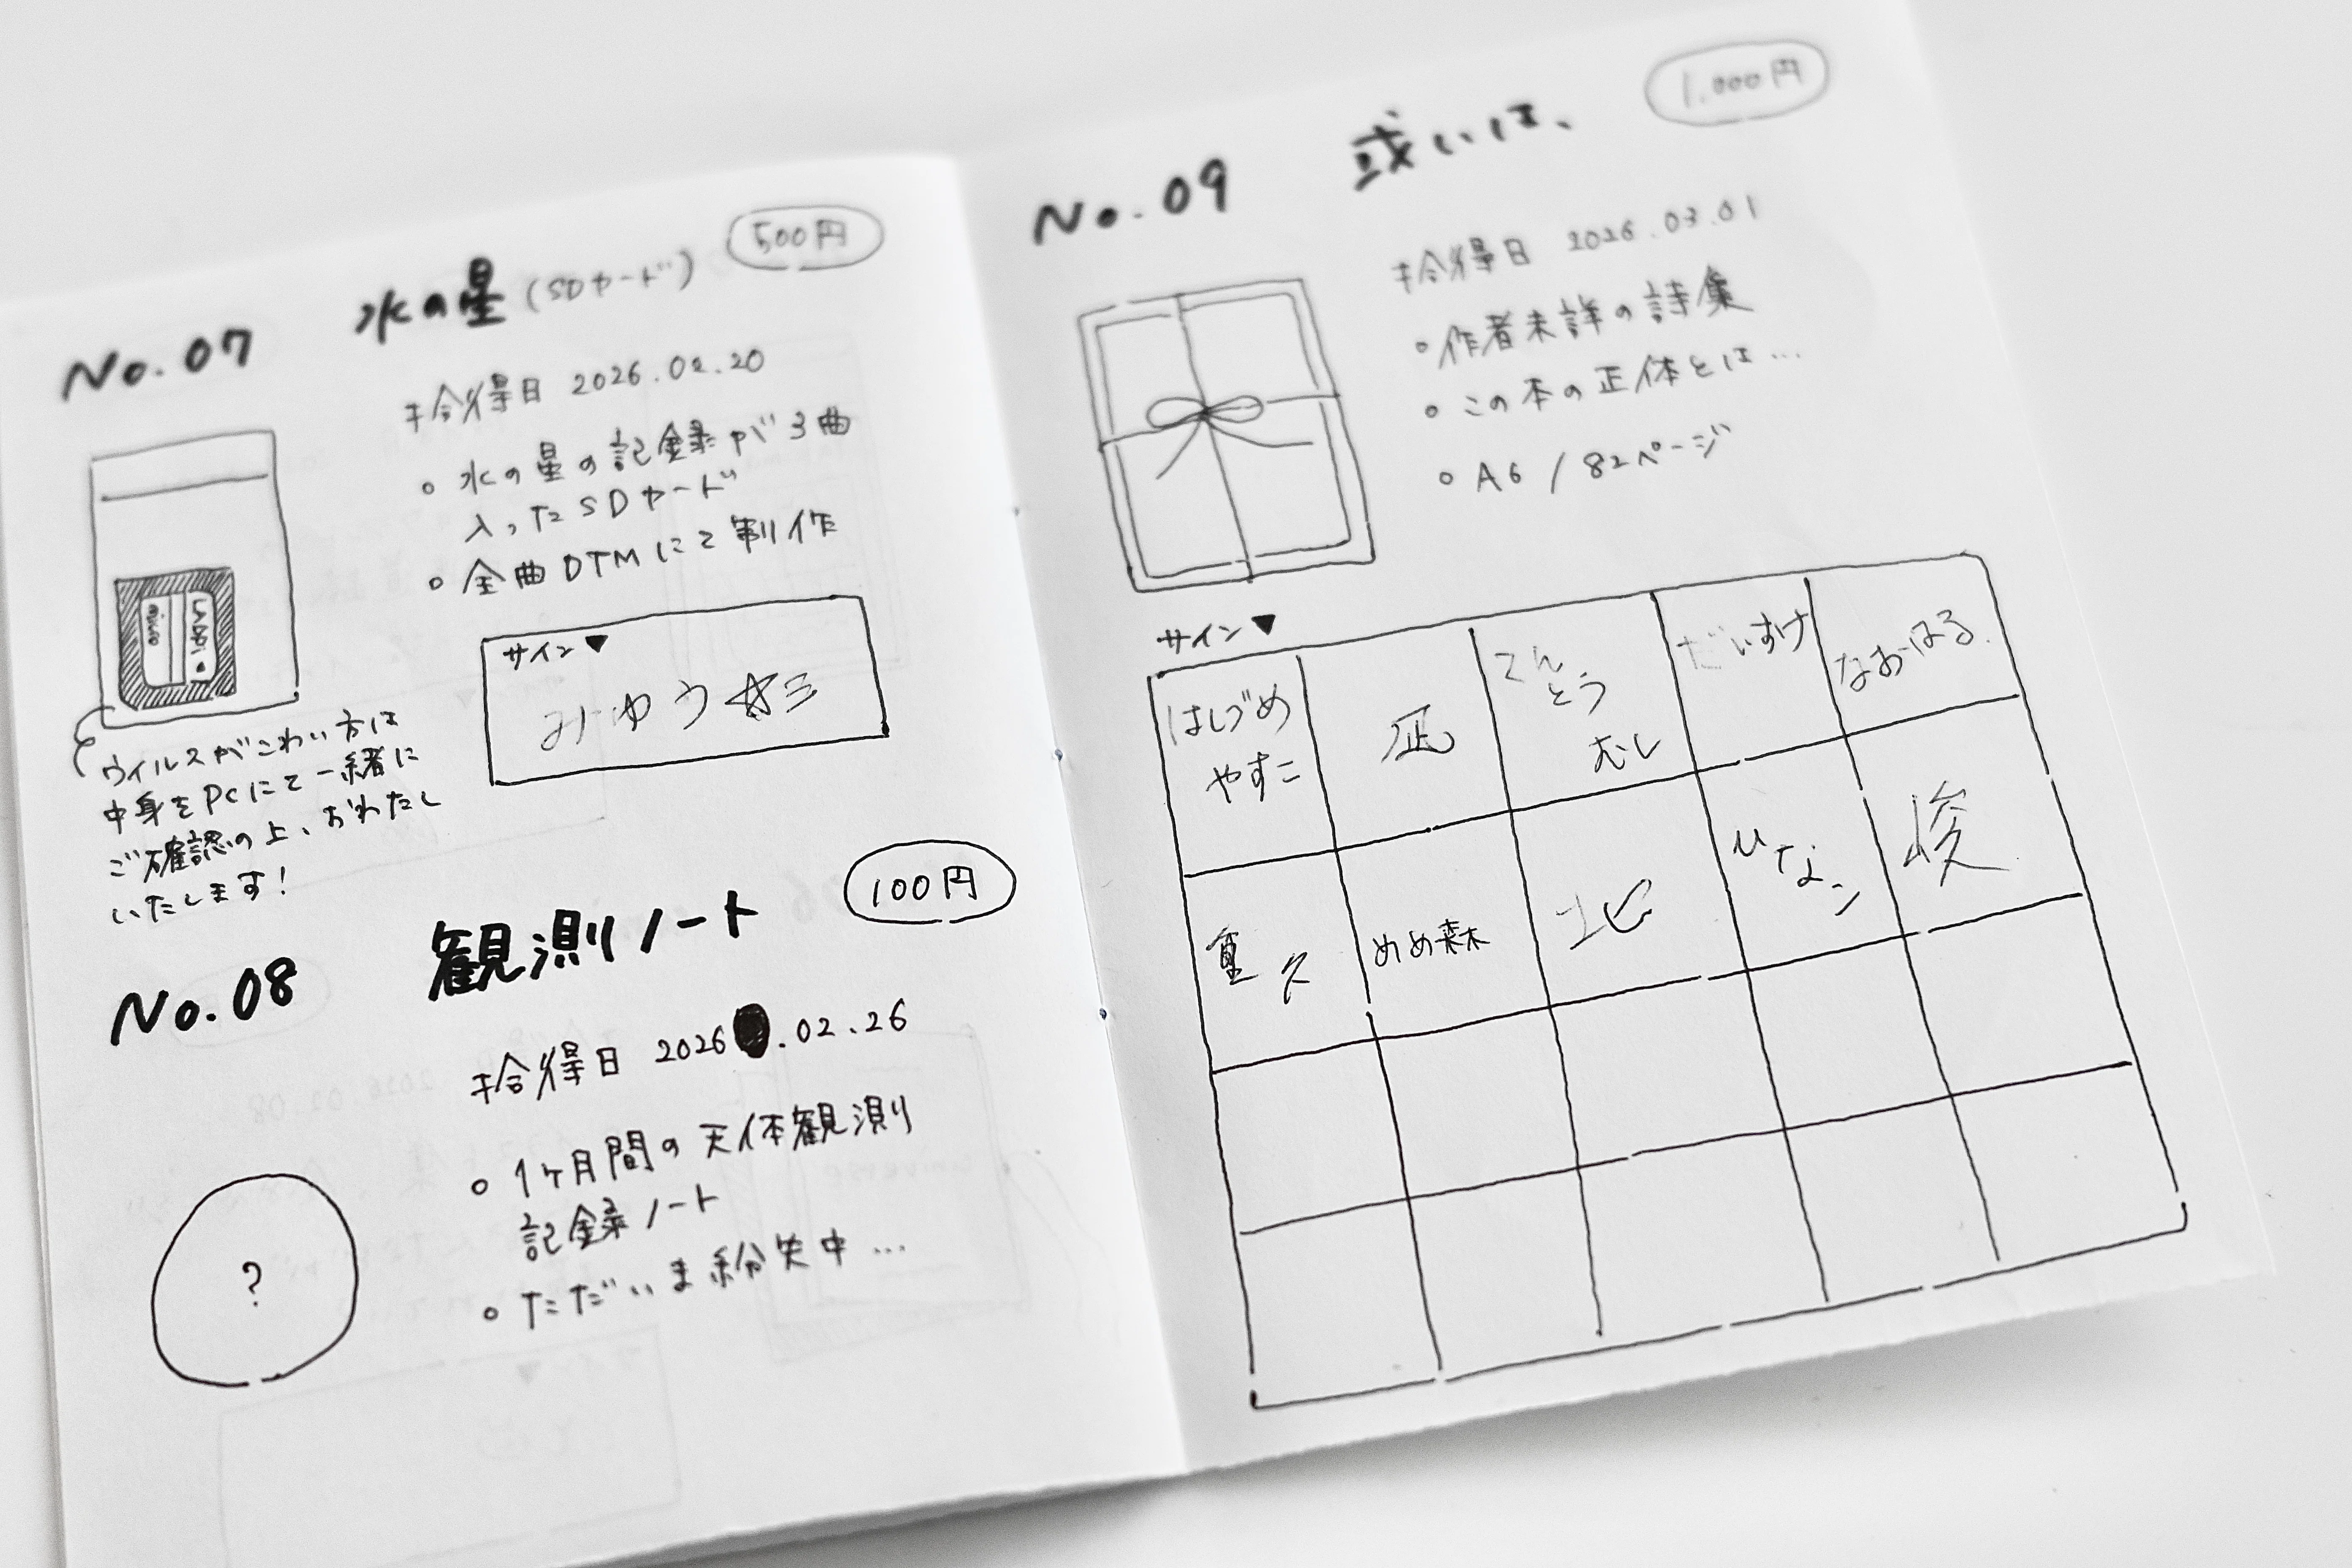 No.07 水の星 (SDカード) 500円
拾得日 2026.02.20
水の星の記録が3曲
入ったSDカード
全曲DTMにて制作
サイン▼
みゆう
micro
ウイルスがこわい方は
中身をPCにて一緒に
ご確認の上、おわたし
いたします!
No.08 観測ノート 100円
拾得日 2026.02.26
1ヶ月間の天体観測
記録ノート
ただいま紛失中…
?
No.09 或いは、 1,000円
拾得日 2026.03.01
作者未詳の詩集
この本の正体とは…
A6 / 82ページ
サイン▼
はじづめ
やすこ
凪
てん
とう
むし
だいすけ
なおはる
重久
めめ森
北
ひなこ
俊